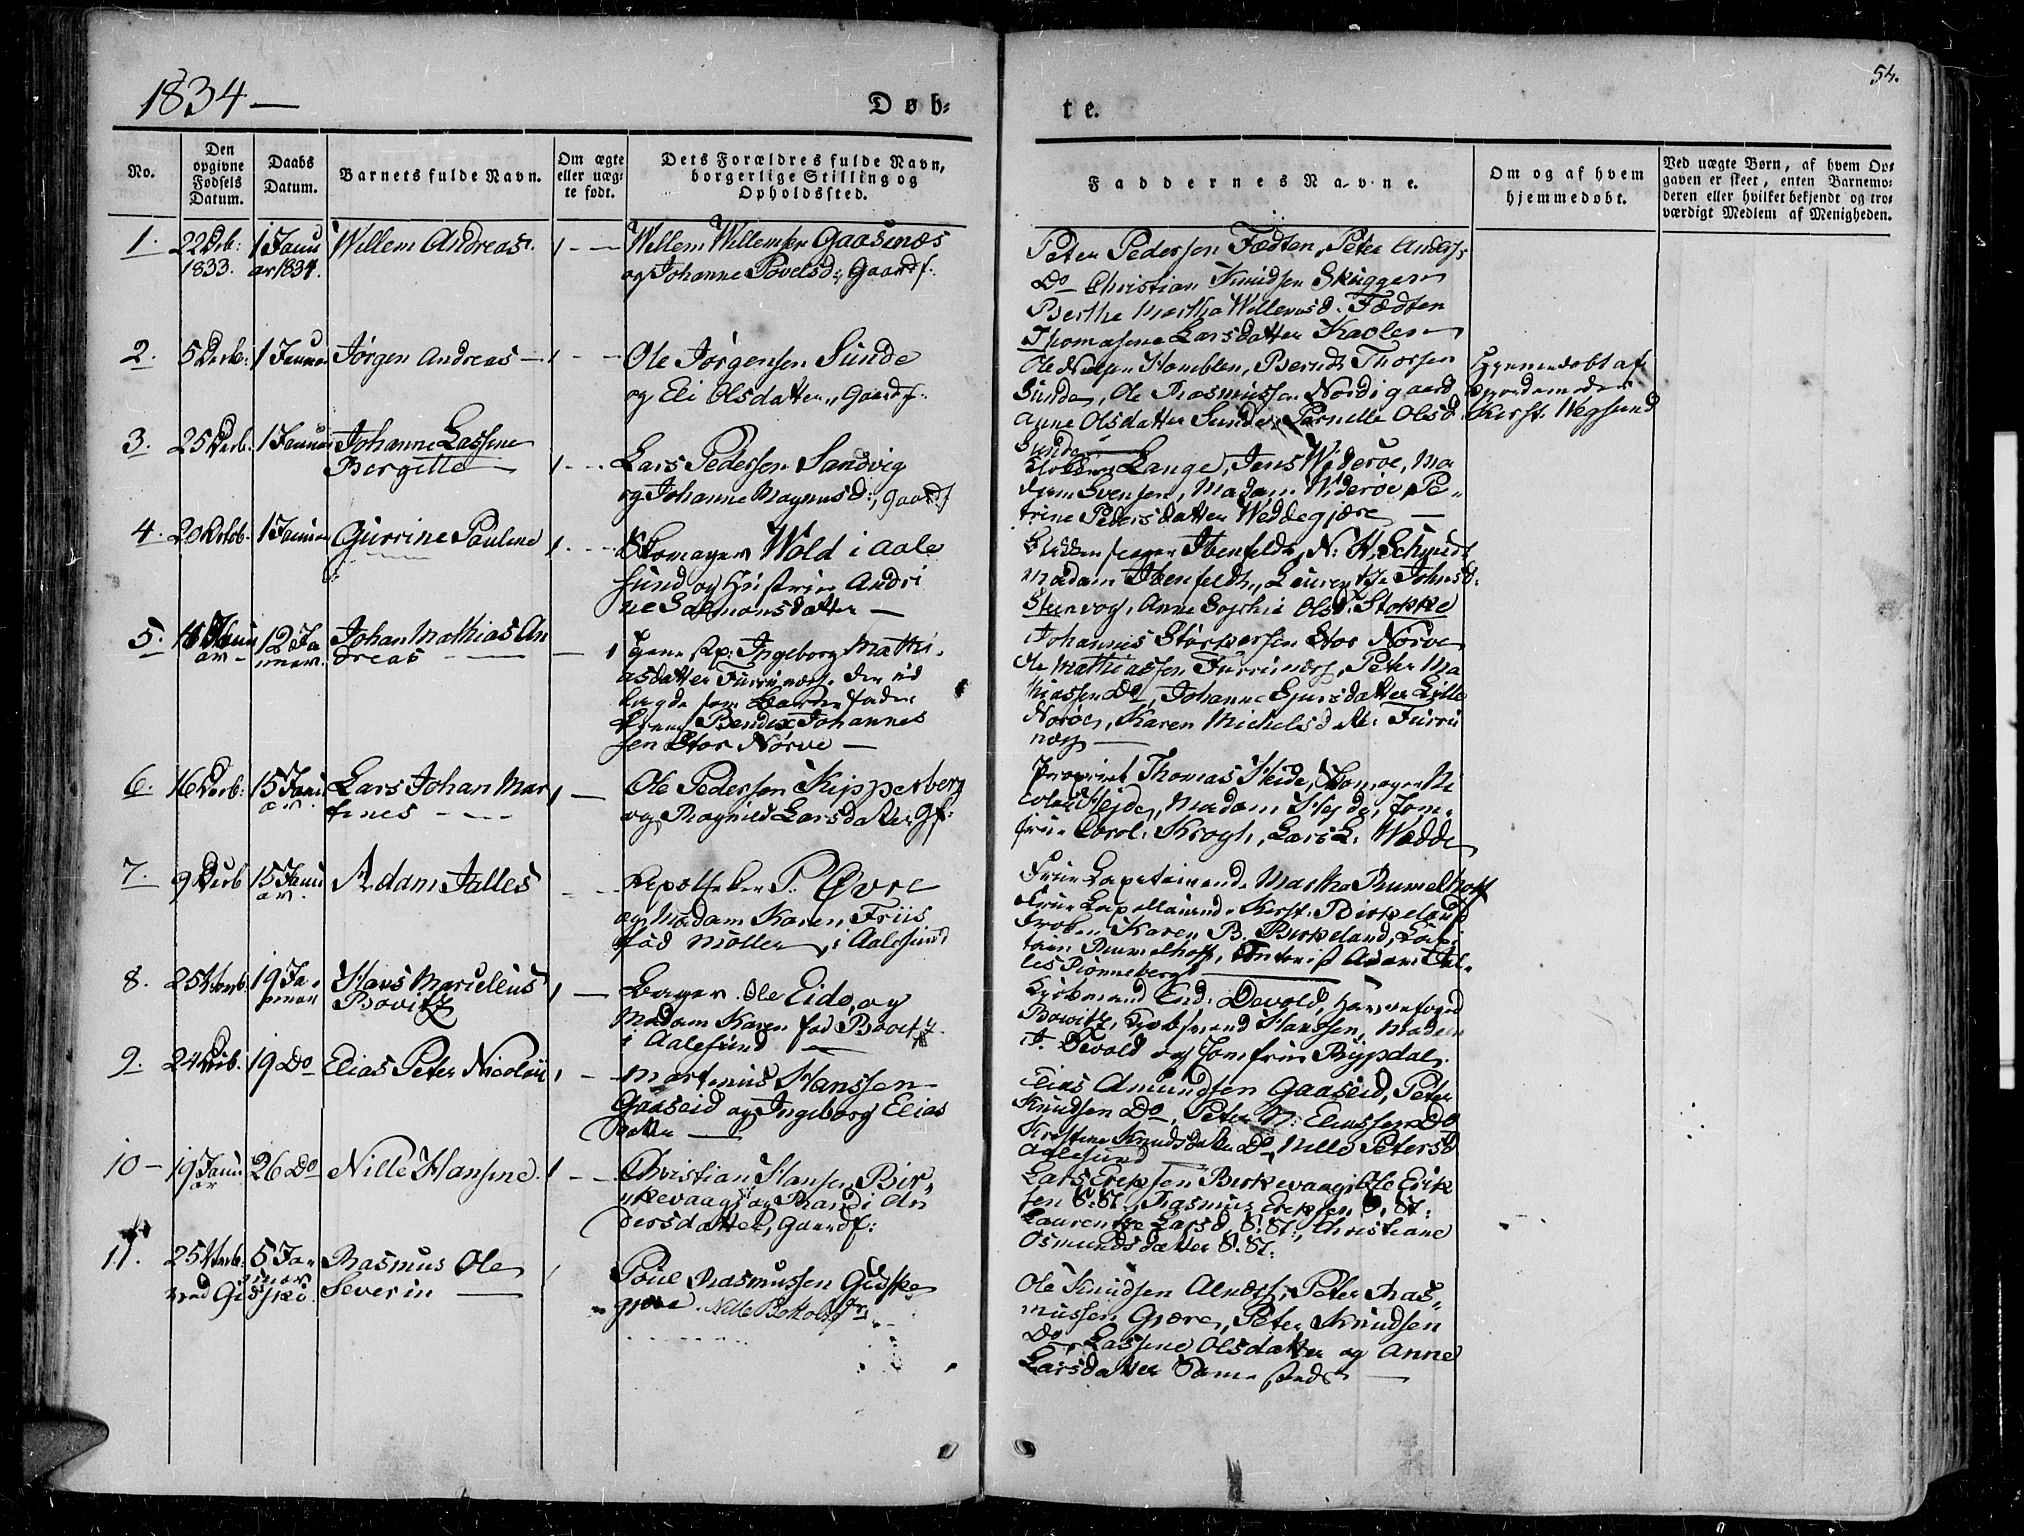 1834 —
Døb-
te.
54.
No.
Den opgivne Fødsels Datum.
Daabs Datum.
Barnets fulde Navn.
Om ægte eller uægte født.
Dets Forældres fulde Navn, borgerlige Stilling og Opholdssted.
Faddernes Navne.
Om og af hvem hjemmedøbt.
Ved uægte Børn, af hvem Opgaven er skeet, enten Barnemoderen eller hvilket bekjendt og troværdigt Medlem af Menigheden.
1. 22 Deb: 1 Janu Willem Andreas. 1 — Willem Willemsen Gaasenæs
1833. ar 1834. og Johanne Povelsd: Gaardf:
Peter Pedersen Fædten, Peter Anders:
Do Christian Knudsen Skuggen
Berthe Martha Willemsd. Fædten
Thomasene Larsdatter Kaolen
2. 5 Decb: 1 Januar Jørgen Andreas — 1 — Ole Jørgensen Sunde
og Eli Olsdatter, Gaardf:
Ole Nelsen Humblen, Berndt Thorsen
Sunde, Ole Rasmussen Nordigaard
Anne Olsdatter Sunde, Pernille Olsd.
Sunde
Hjemmedøbt af
Gjordemoder
Kirst. Wegsund
3. 25 Decb. 1 Januar Johanne Lassine
Bergitte — 1 — Lars Pedersen Sandvig
og Johanne Magnusd:, Gaardf
Lange, Jens Widerøe, Ma
dam Svensen, Madam Widerøe, Pe-
trine Pedersdatter Weddegjære —
4. 20 Octob. 1 Januar Gurine Pauline 1 — Skomager Wold i Aale
sund og Hustrue Andri
ne Salmonsdatter —
Ibenfeldt, N. H. Schmidt
Madam Ibenfeldt, Laurentze Johnsd:
Steenvog, Anne Sophie Olsd. Stokke
5. Janu 12 Ja Johan Mathias An
ar — nuar. dreas — — 1 Pige Ingeborg Mathi-
asdatter Furrunæss. der ud
lagde som Barnefader
Bendix Johannes
sen Stor Nørve —
Johannes Størkersen Stor Nørve
Ole Mathiassen Furrunæss, Peter Ma
thiassen Do, Johanne Sjursdatter Lille
Nørve, Karen Michelsdtr: Furru
næss —
6. 16 Decb: 15 Janu Lars Johan Mar
ar. tines — 1 — Ole Pedersen Kipperberg
og Ragnild Larsdatter Gf:
Propriet Thomas Heide, Skomager Ni
colai Hejde, Madam Hejde, Jom-
frue Carol: Krogh, Lars L: Wedde
7. 9 Decb 15 Janu Adam Jalles — Apotheker P. Øvre
ar. og Madam Karen Friis
fød Møller, i Aalesund
Frue Capitainende Martha Rumelhoff
Frue Capellainende Kirst. Birkeland
Frøken Karen B. Birkeland, Capi
tain Rumelhoff, Adam Jal-
les Rønneberg
8. 25 19 Ja- Hans Marielius
nuar Bovitz 1 — Bager Ole Eide, og
Madam Karen fød Bovitz
i Aalesund —
Kjøbmand End: Devold, Havnefoged
Bowitz, Kjøbmand Hanssen, Madam
Devold og Jomfrue Rypdal.
9. 24 Deb. 19 Do Elias Peter Nicolai 1 — Martinus Hanssen
Gaaseid og Ingeborg Elias
datter —
Elias Amundsen Gaaseid, Peter
Knudsen Do, Peter N: Eliassen Do
Kirstine Knudsdatter Do, Nille Petersd
Aalesund
10 — 19 Janu 26 Do Nille Hansine. 1 — Christian Hansen Bir-
ar kevaag og Randi An
dersdatter, Gaardf:
Lars Erichsen Birkevaag, Ole Erik
sen S. St., Rasmus Erichsen S. St:
Laurentze Larsd. S. St:, Christiane
Osmundsdatter S. St.
11. 25 5 Ja- Rasmus Ole
ved Giskø. nuar Severin — 1 Poul Rasmussen Giske
gjære. Nille
Ole Knudsen Alnæs, Peter Ras-
mussen Gjære, Peter Knudsen
Do Lassine Olsdatter og Anne
Larsdatter Samesteds —